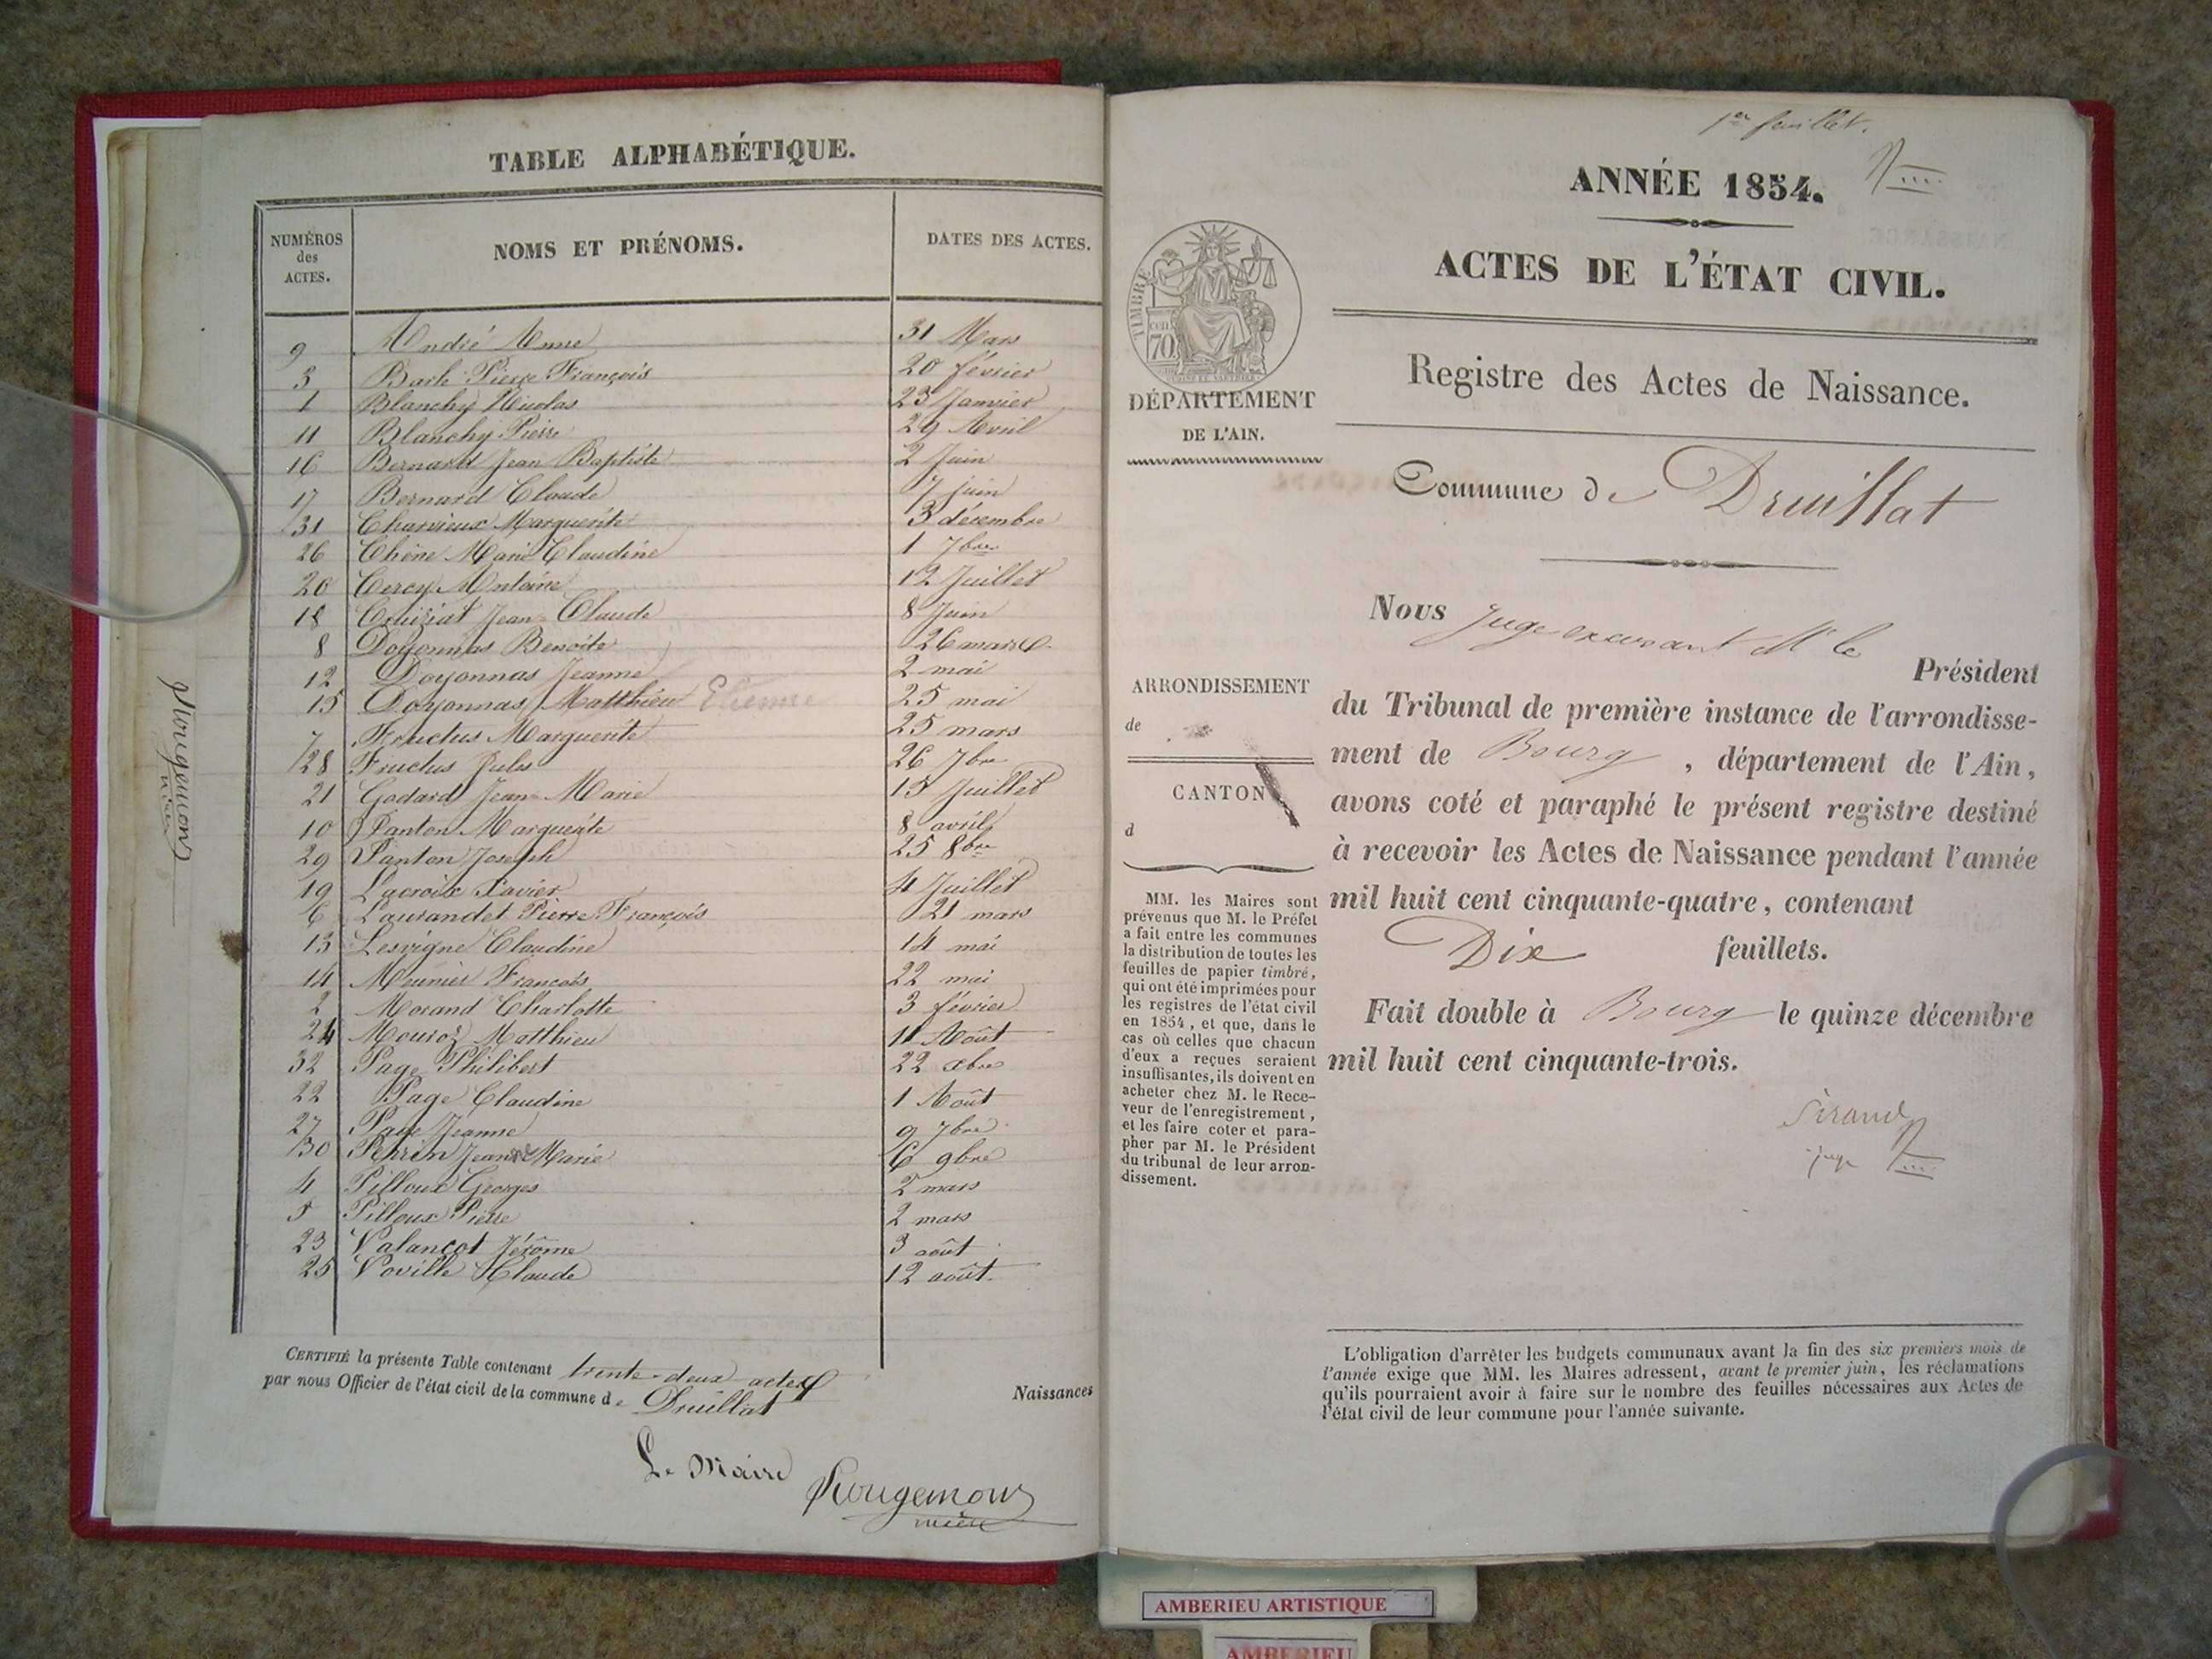 TABLE ALPHABÉTIQUE.
NUMÉROS des ACTES. NOMS ET PRÉNOMS. DATES DES ACTES.
9 André Anne 31 Mars
3 Barh Pierre François 20 février
1 Blanchy Nicolas 23 Janvier
11 Blanchy Pierre 29 Avril
16 Bernard Jean Baptiste 2 Juin
17 Bernard Claude 7 juin
31 Charvieux Marguerite 3 décembre
26 Chêne Marie Claudine 1 7bre
20 Cercy Antoine 12 Juillet
18 Jean Claude 8 Juin
8 Doyonnas Benoite 26 mars
12 Doyonnas Jeanne 2 mai
15 Doyonnas Matthieu Etienne 25 mai
7 Fructus Marguerite 25 mars
28 Fructus Jules 26 7bre
21 Godard Jean Marie 15 Juillet
10 Janton Marguerite 8 avril
29 Janton Joseph 25 8bre
19 Lacroix Xavier 4 Juillet
6 Laurandet Pierre François 21 mars
13 Lesvigne Claudine 14 mai
14 Meunier François 22 mai
2 Morand Charlotte 3 février
24 Mouroz Matthieu 11 Août
32 Page Philibert 22 xbre
22 Page Claudine 1 Août
27 Page Jeanne 9 7bre
30 Perrin Jeanne Marie 6 9bre
4 Pilloux Georges 2 mars
5 Pilloux Pierre 2 mars
23 Valançot Jérôme 3 août
25 Voville Claude 12 août.
CERTIFIÉ la présente Table contenant trente-deux actes
par nous Officier de l'état civil de la commune de Druillat
Naissances
Le Maire
Rougemont
maire
Rougemont
maire
1er feuillet.
ANNÉE 1854.
ACTES DE L'ÉTAT CIVIL.
Registre des Actes de Naissance.
Commune de Druillat
TIMBRE
CEN. 70
DÉPARTEMENT
DE L'AIN.
ARRONDISSEMENT
de
CANTON
d
MM. les Maires sont
prévenus que M. le Préfet
a fait entre les communes
la distribution de toutes les
feuilles de papier timbré,
qui ont été imprimées pour
les registres de l'état civil
en 1854, et que, dans le
cas où celles que chacun
d'eux a reçues seraient
insuffisantes, ils doivent en
acheter chez M. le Rece-
veur de l'enregistrement,
et les faire coter et para-
pher par M. le Président
du tribunal de leur arron-
dissement.
Nous Juge excusant Mr le
Président
du Tribunal de première instance de l'arrondisse-
ment de Bourg, département de l'Ain,
avons coté et paraphé le présent registre destiné
à recevoir les Actes de Naissance pendant l'année
mil huit cent cinquante-quatre, contenant
Dix feuillets.
Fait double à Bourg le quinze décembre
mil huit cent cinquante-trois.
Sirand
juge
L'obligation d'arrêter les budgets communaux avant la fin des six premiers mois de
l'année exige que MM. les Maires adressent, avant le premier juin, les réclamations
qu'ils pourraient avoir à faire sur le nombre des feuilles nécessaires aux Actes de
l'état civil de leur commune pour l'année suivante.
AMBERIEU ARTISTIQUE
AMBERIEU